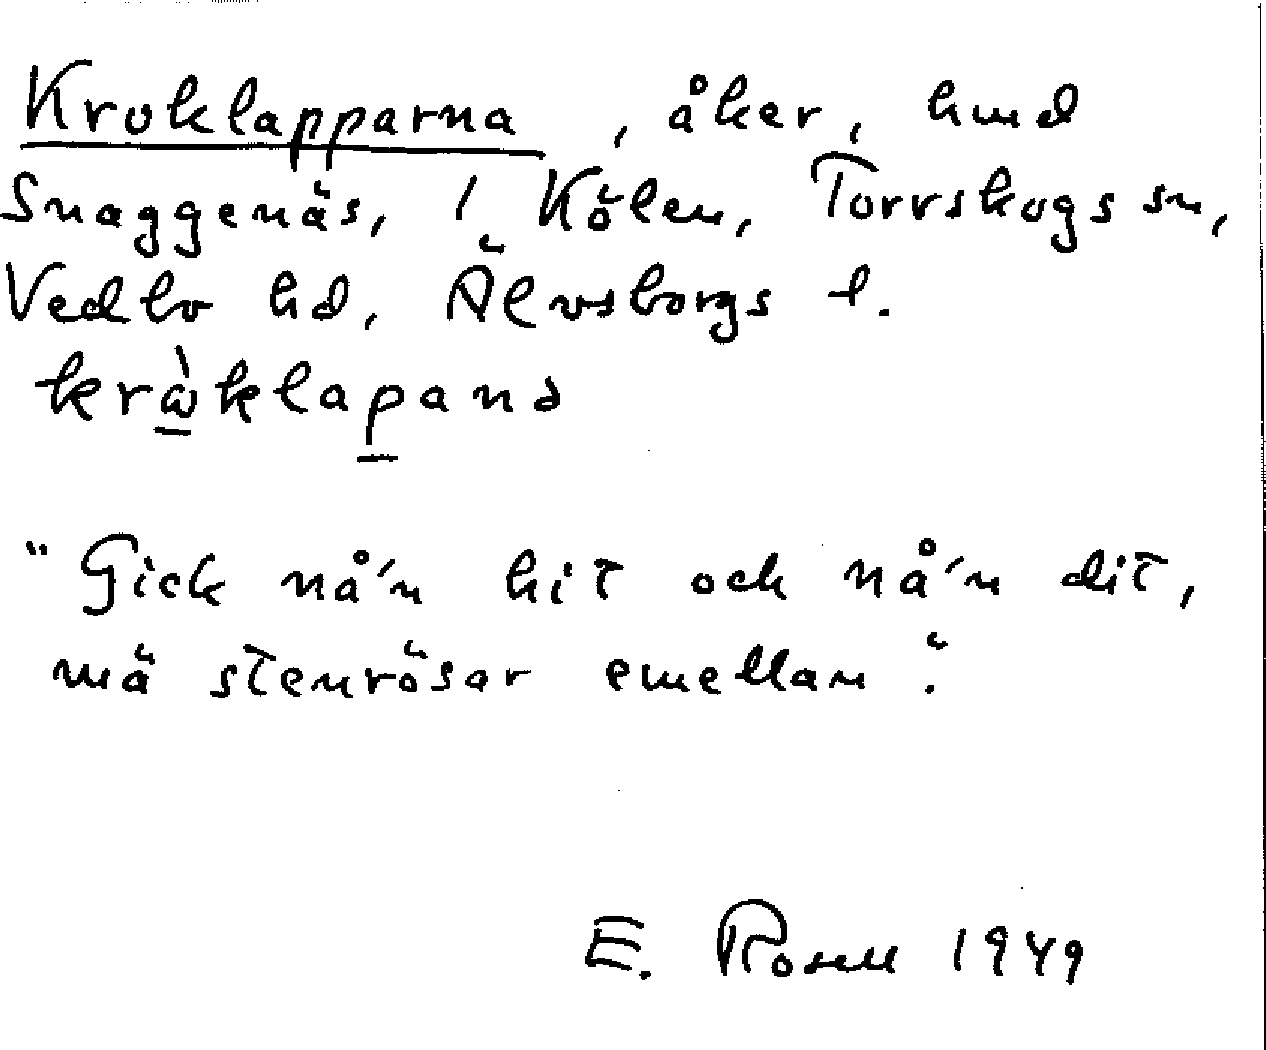 Kroklapparna, åker, hmd
Snaggenäs, 1 Kölen, Torrskogs sn,
Vedbo hd, Älvsborgs l.
"Gick nå'n hit och nå'n dit,
mä stenrösar emellan".
E. Rosell 1949